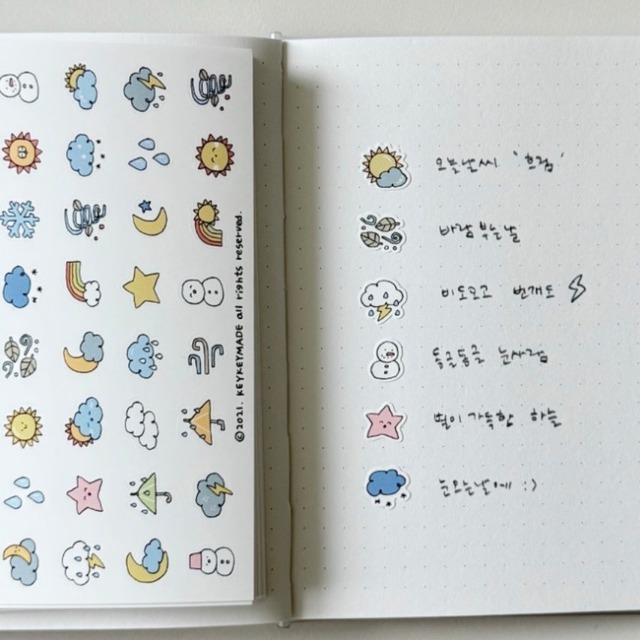 ©2021. KEYKEYMADE all rights reserved.
오늘날씨 '흐림'
바람 부는 날
비도오고 번개도
동글동글 눈사람
별이 가득한 하늘
눈오는날에!! :)